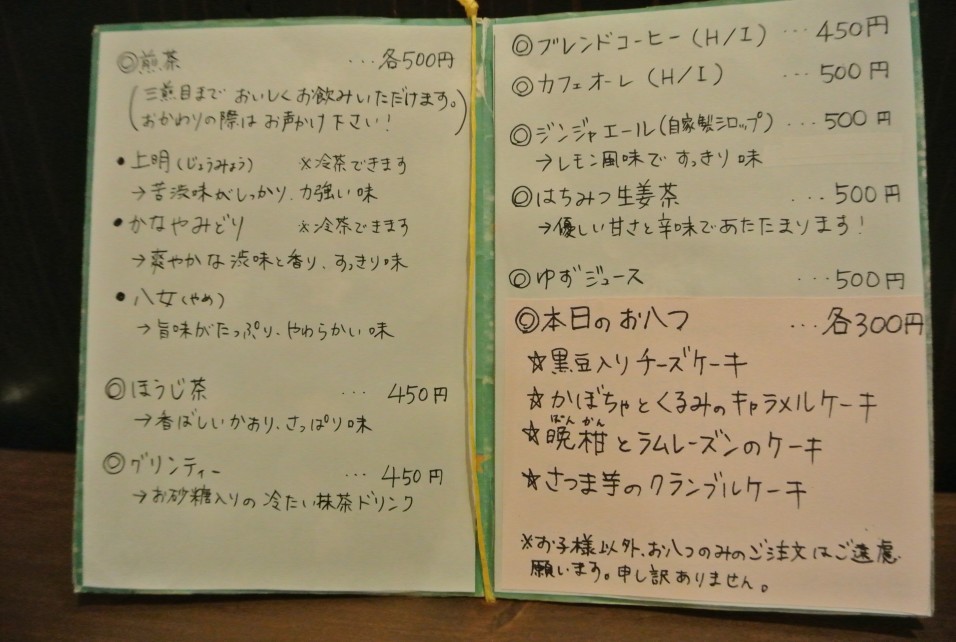 ◎煎茶 ･･･各500円
(三煎目まで おいしくお飲みいただけます。
おかわりの際は お声かけ下さい！)
• 上明(じょうみょう) ※冷茶できます
→苦渋味がしっかり、力強い味
• かなやみどり ※冷茶できます
→爽やかな渋味と香り、すっきり味
• 八女(やめ)
→旨味がたっぷり、やわらかい味
◎ほうじ茶 ･･･ 450円
→香ばしいかおり、さっぱり味
◎グリンティー ･･･ 450円
→お砂糖入りの 冷たい抹茶ドリンク
◎ブレンドコーヒー(H/I) ･･･450円
◎カフェオーレ(H/I) ･･･500円
◎ジンジャエール(自家製シロップ) ･･･500円
→レモン風味で すっきり味
◎はちみつ生姜茶 ･･･500円
→優しい甘さと辛味であたたまります！
◎ゆずジュース ･･･500円
◎本日のお八つ ･･･各300円
☆黒豆入りチーズケーキ
☆かぼちゃとくるみのキャラメルケーキ
ぽんかん
☆晩柑とラムレーズンのケーキ
☆さつま芋のクランブルケーキ
※お子様以外、お八つのみのご注文はご遠慮
願います。申し訳ありません。